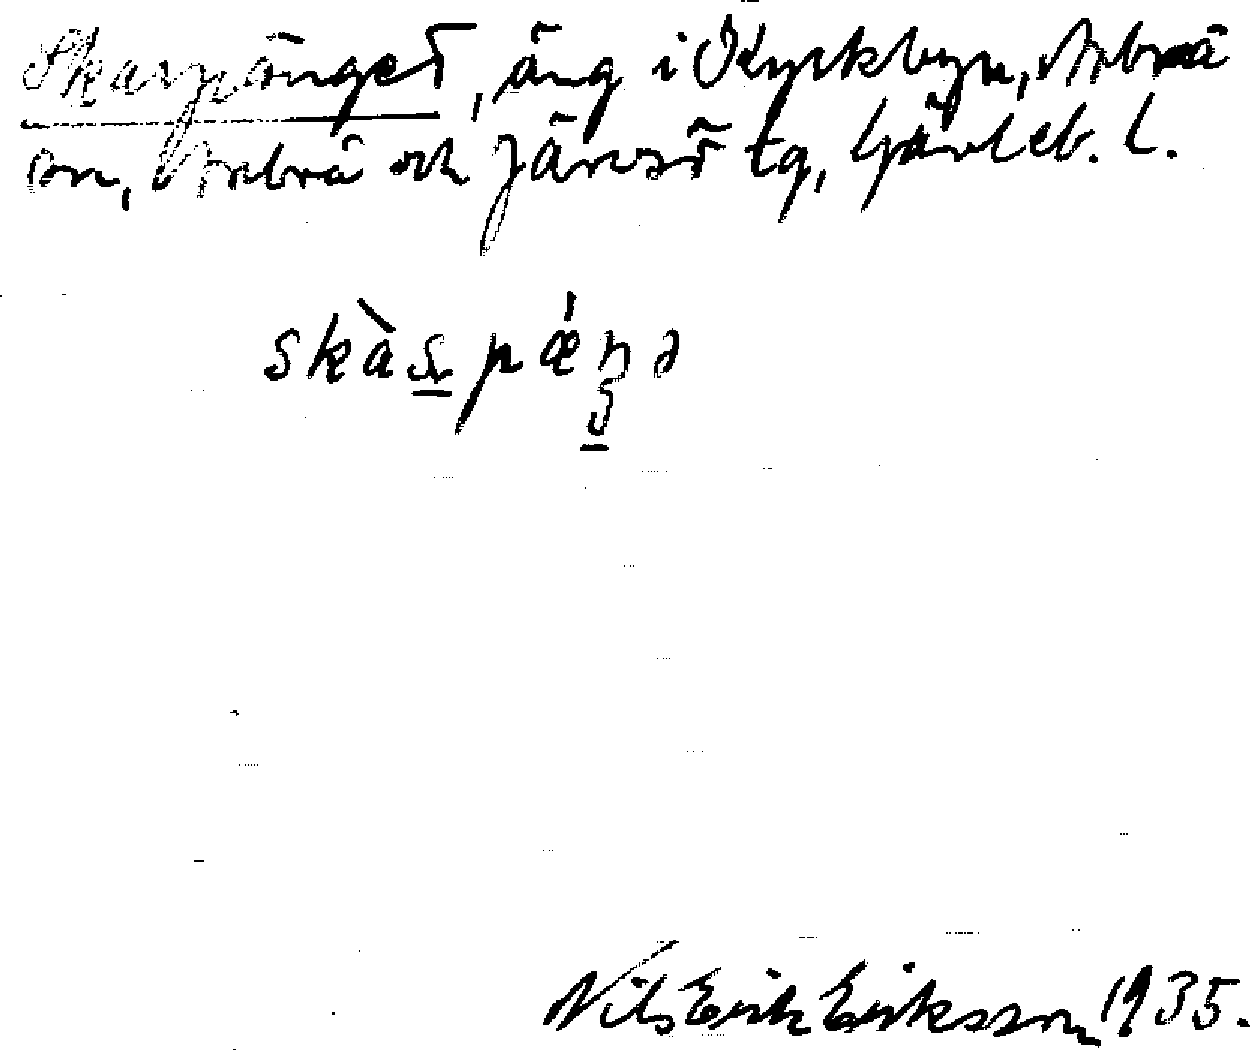 Skarpänget, äng i Kyrkbyn, Arbrå
sn, Arbrå och Järvsö tg, Gävleb. l.
skàs̠pǽŋ̠ə
Nils Erik Eriksson 1935.